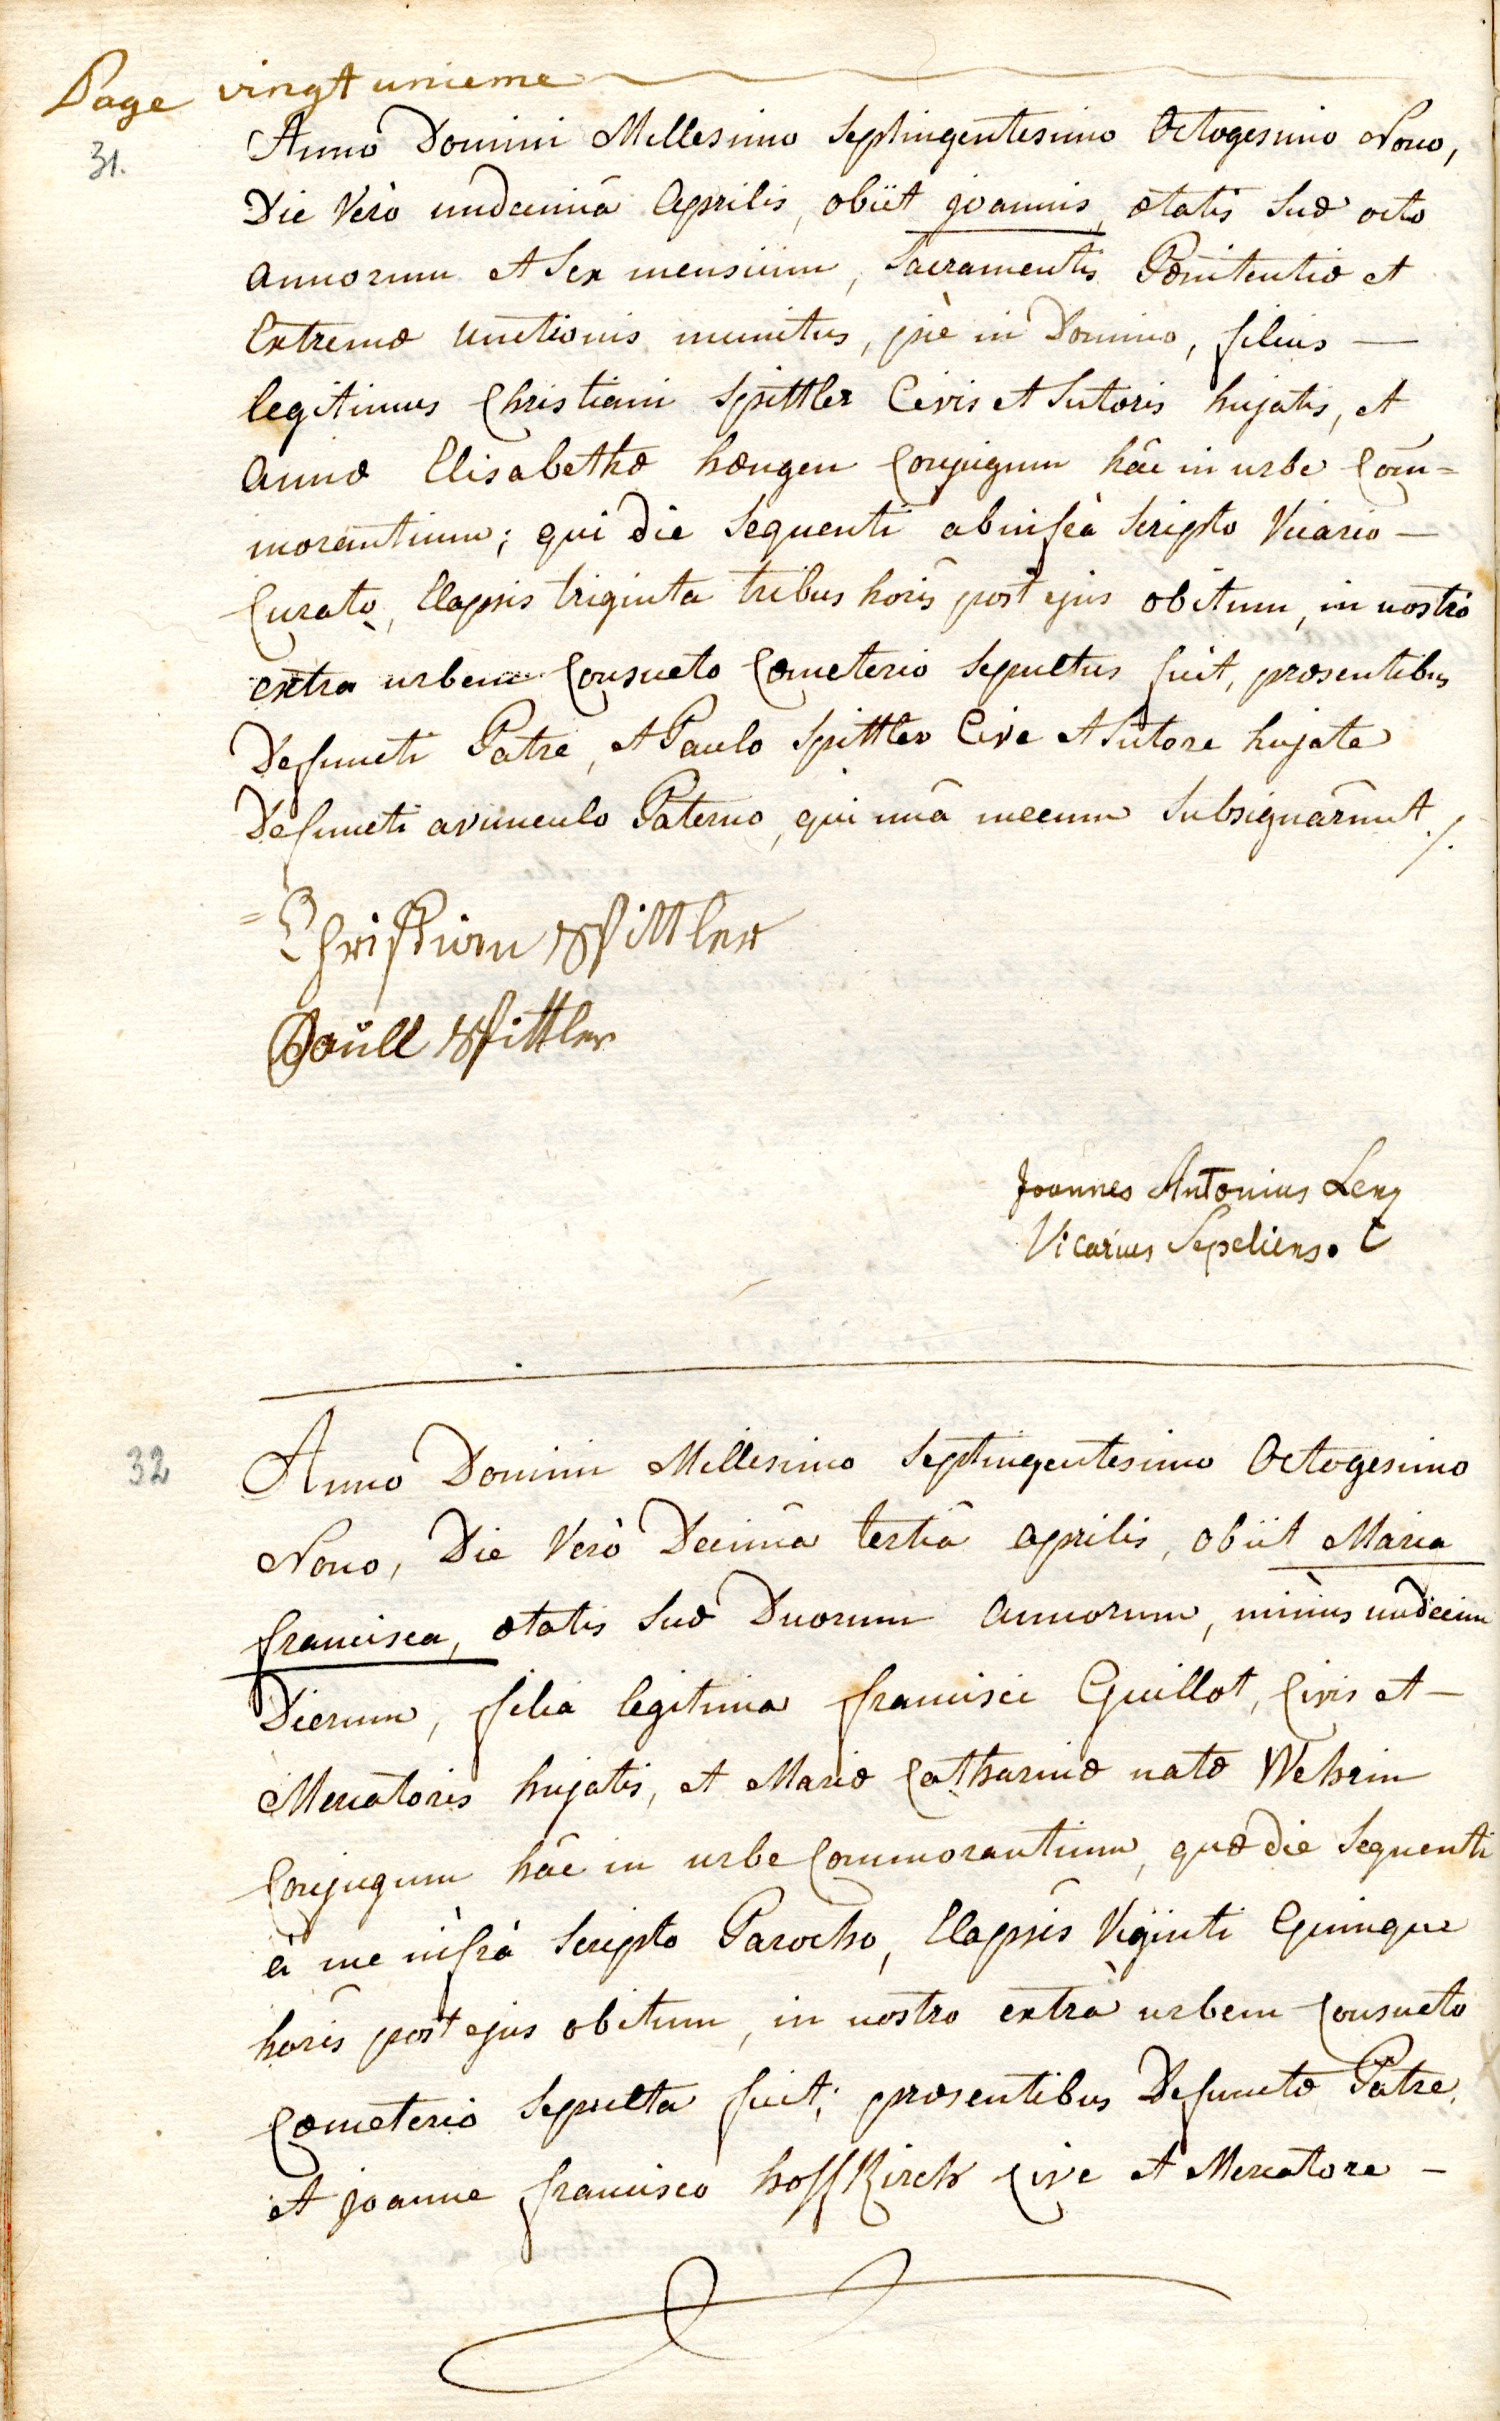 Page vingt unieme
31.
Anno Domini Millesimo Septingentesimo Octogesimo Nono,
Die Verò undecimâ Aprilis, obiit joannis, ætatis Suæ octo
annorum et Sex mensium, Sacramentis Pœnitentiæ et
Extremæ Unctionis munitus, piè in Domino, filius —
legitimus Christiani Spittler Civis et Sutoris hujatis, et
annæ Elisabethæ hængen Conjugum hâc in urbe Com=
morantium; qui die Sequenti ab infrà Scripto Vicario —
Curato, Elapsis triginta tribus horis post ejus obitum, in nostrô
extra urbem Consueto Cœmeterio Sepultus fuit, præsentibus
Defuncti Patre, et Paulo Spittler Cive et Sutore hujate
Defuncti avunculo Paterno, qui unâ mecum Subsignârunt ./.
= Christian Spittler
Paull Spittler
Joannes Antonius Lenz
Vicarius Sepeliens.
32
Anno Domini Millesimo Septingentesimo Octogesimo
Nono, Die Verò Decimâ tertiâ aprilis, obiit Maria
francisca, ætatis Suæ Duorum annorum, minùs undecim
Dierum, filia legitima francisci Guillot, Civis et —
Mercatoris hujatis, et Mariæ Catharinæ natæ Wehrin
Conjugum hâc in urbe Commorantium, quæ die Sequenti
à me infrà Scripto Parocho, Elapsis Viginti Quinque
horis post ejus obitum, in nostro extrà urbem Consueto
Cœmeterio Sepulta fuit; præsentibus Defunctæ Patre,
et joanne francisco hoffKirch Cive et Mercatore —